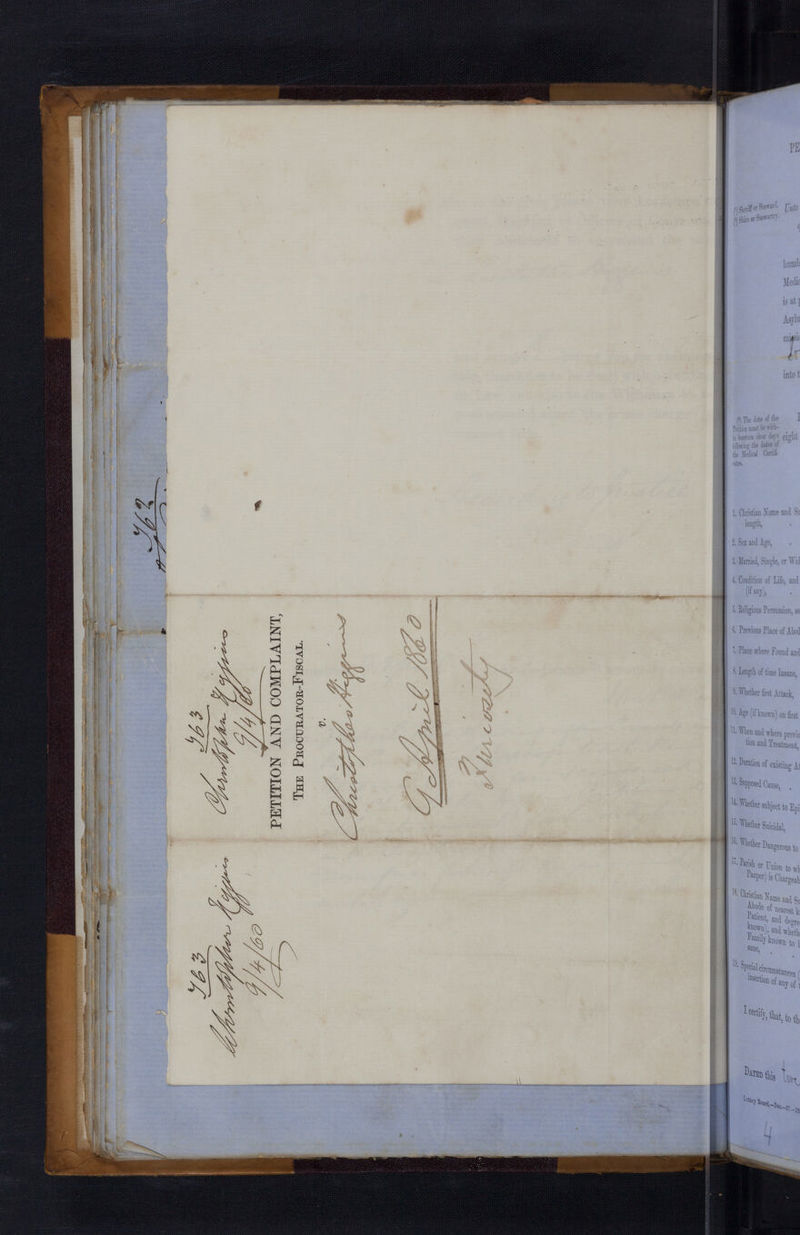 763
763
Christopher Higgins
9/4/60
PETITION AND COMPLAINT,
THE PROCURATOR-FISCAL.
v.
Christopher Higgins
9 April 1860
Furiosity
763
Christopher Higgins
9/4/60
PE
(1) Sheriff or Steward.
(2) Shire or Stewartry.
Unto
Medic
is at
Asylu
into t
(3) The date of the
Petition must be with-
in fourteen clear days
following the dates of
the Medical Certifi-
cates.
eight
1. Christian Name and Su
length,
2. Sex and Age,
3. Married, Single, or Wid
4. Condition of Life, and
(if any),
5. Religious Persuasion, so
6. Previous Place of Abod
7. Place where Found and
8. Length of time Insane,
9. Whether first Attack,
10. Age (if known) on first
11. When and where previo
tion and Treatment,
12. Duration of existing At
13. Supposed Cause,
14. Whether subject to Epi
15. Whether Suicidal,
16. Whether Dangerous to
17. Parish or Union to wh
Pauper) is Chargeab
18. Christian Name and Su
Abode of nearest k
Patient, and degre
known), and wheth
Family known to
sane,
19. Special circumstances
insertion of any of
I certify, that, to th
DATED this
4